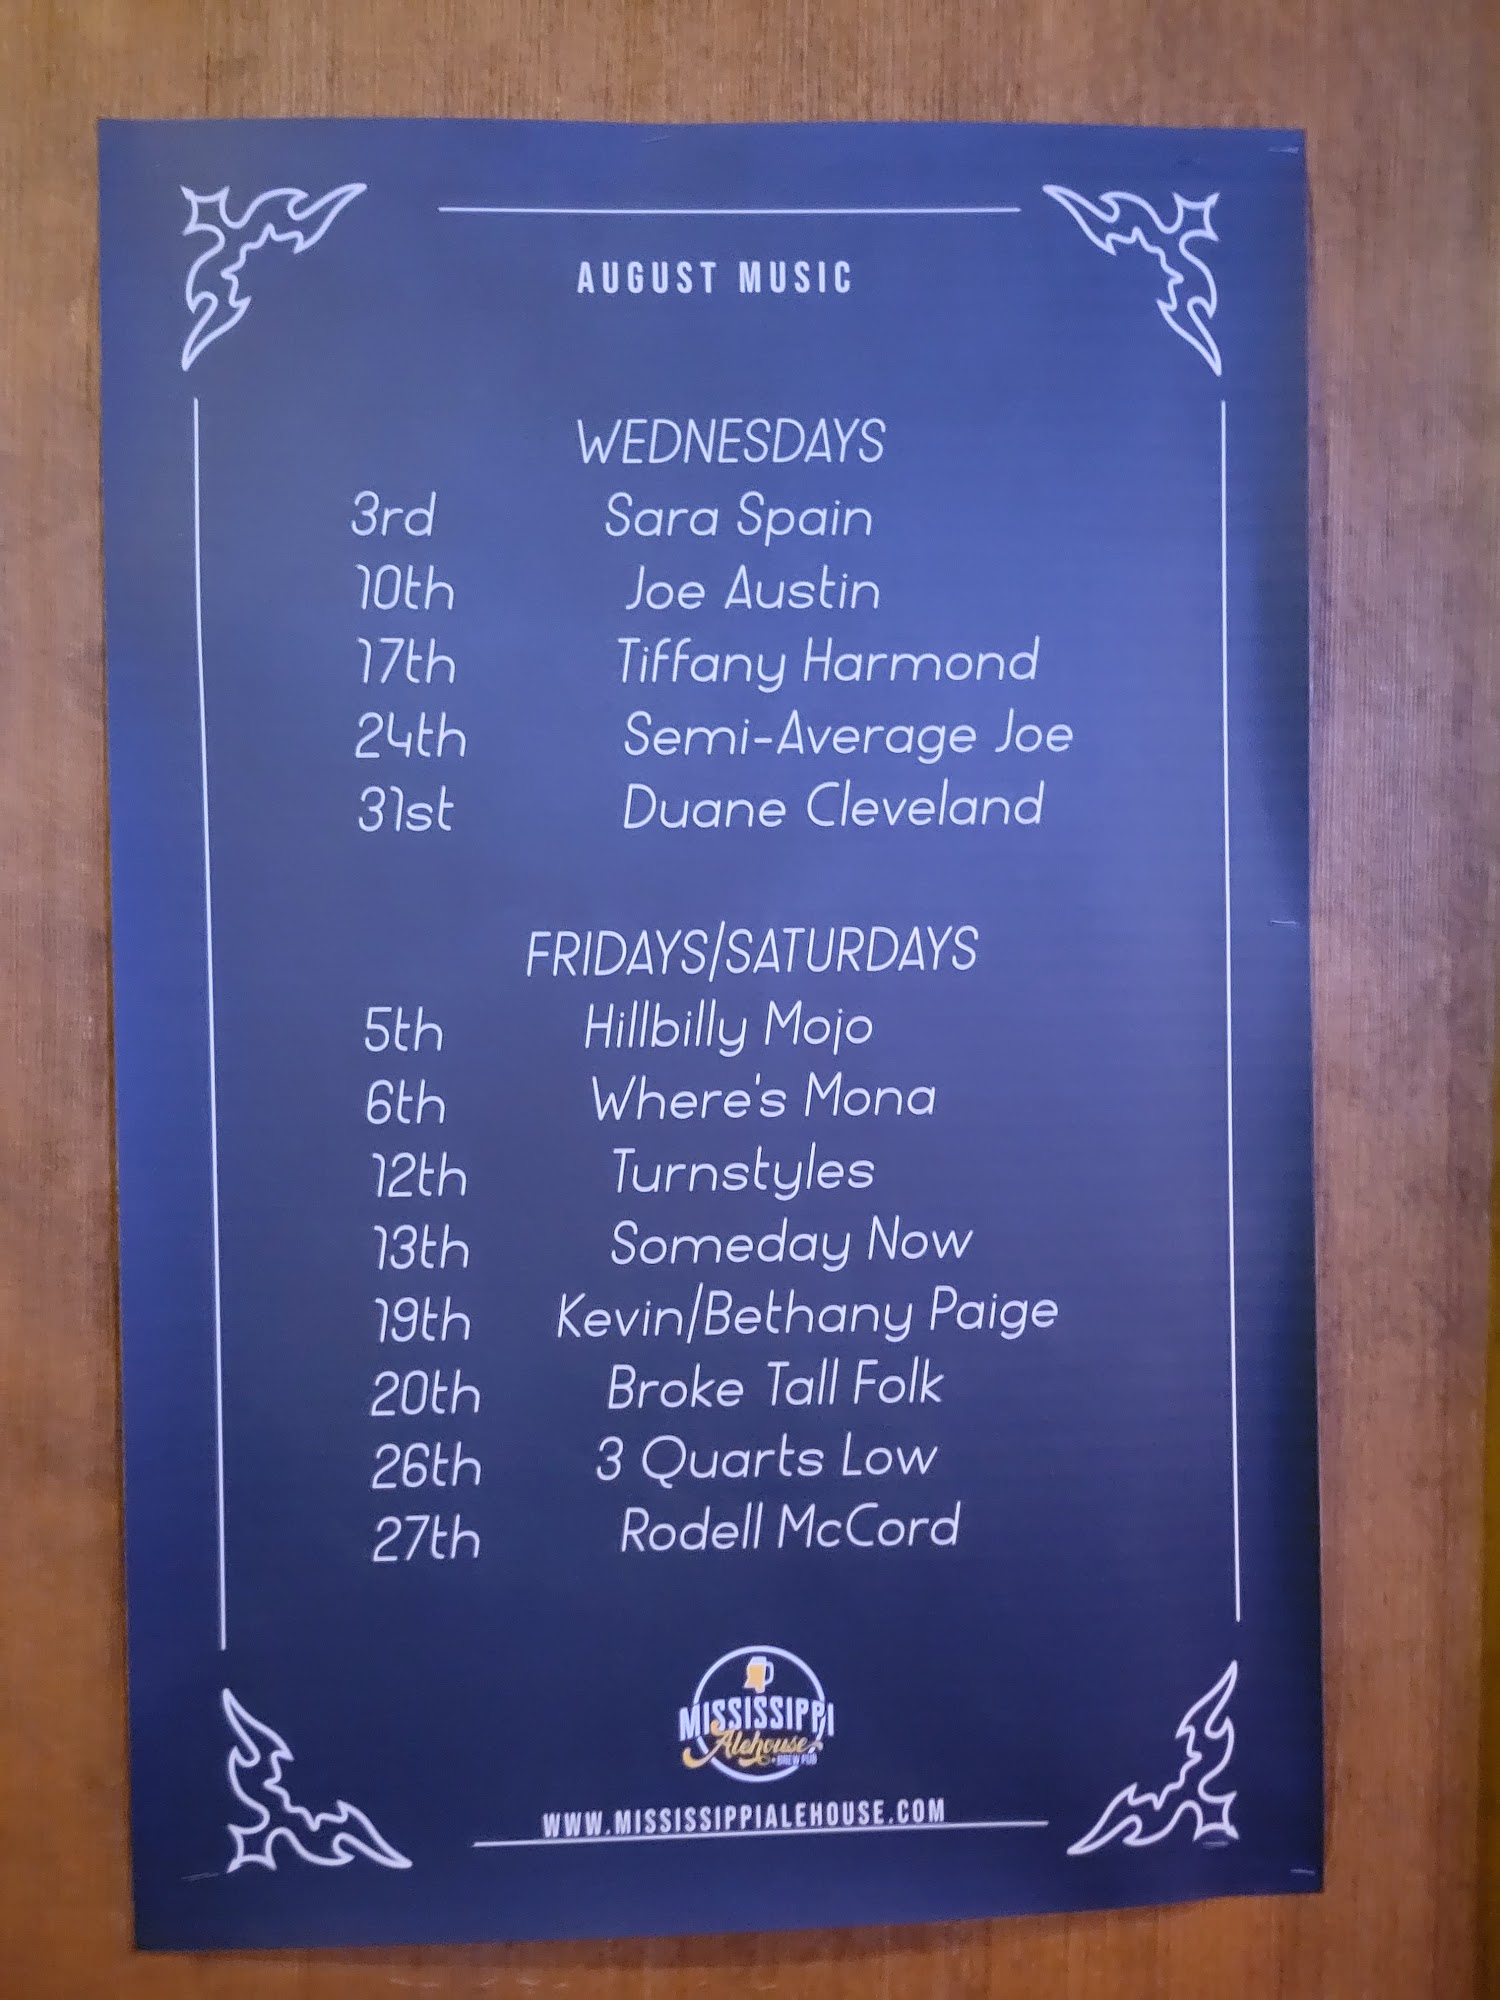 AUGUST MUSIC
WEDNESDAYS
3rd Sara Spain
10th Joe Austin
17th Tiffany Harmond
24th Semi-Average Joe
31st Duane Cleveland
FRIDAYS/SATURDAYS
5th Hillbilly Mojo
6th Where's Mona
12th Turnstyles
13th Someday Now
19th Kevin/Bethany Paige
20th Broke Tall Folk
26th 3 Quarts Low
27th Rodell McCord
MISSISSIPPI
Alehouse
BREW PUB
WWW.MISSISSIPPIALEHOUSE.COM